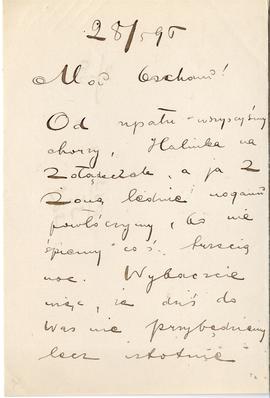 28/5 95
Moi Kochani!
Od upału wszyscyśmy
chorzy, Halinka na
żołądeczek, a ja z
Żoną ledwie nogami
powłóczymy, bo nie
śpiemy coś trzecią
noc. Wybaczcie
więc, że dziś do
Was nie przybędziemy
lecz istotnie